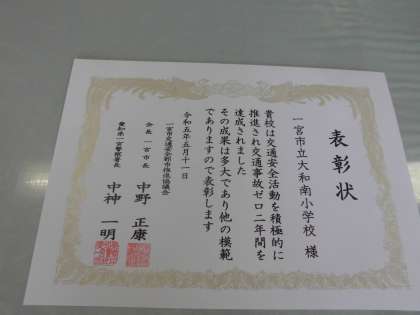 表彰状
一宮市立大和南小学校 様
貴校は交通安全活動を積極的に
推進され交通事故ゼロ二年間を
達成されました
その成果は多大であり他の模範
でありますので表彰します
令和五年五月十一日
一宮市交通安全都市推進協議会
会長 一宮市長 中野 正康
愛知県一宮警察署長 中神 一明